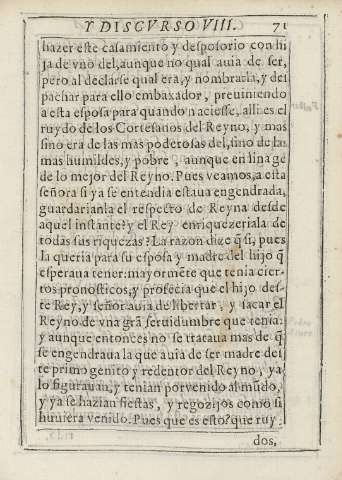 Y DISCVRSO VIII. 71
hazer este casamiento y desposorio con hi
ja de vno del, aunque no qual auia de ser,
pero al declarse qual era, y nombrarla, y des
pachar para ello embaxador, preuiniendo
a esta esposa para quando naciesse, alli es el
ruydo de los Cortesanos del Reyno, y mas
sino era de las mas poderosas del, sino de las
mas humildes, y pobre, aunque en linage
de lo mejor del Reyno. Pues veamos, a esta
señora si ya se entendia estaua engendrada,
guardarianla el respecto de Reyna desde
aquel instante? y el Rey enriquezeriala de
todas sus riquezas? La razon dize q̃ si, pues
la queria para su esposa y madre del hijo q̃
esperaua tener: mayormẽte que tenia cier-
tos pronosticos, y profecia que el hijo des-
te Rey, y señor auia de libertar, y sacar el
Reyno de vna grã seruidumbre que tenia:
y aunque entonces no se trataua mas de q̃
se engendraua la que auia de ser madre des
te primogenito y redentor del Reyno, ya
lo figurauan, y tenian por venido al mũdo,
y ya se hazian fiestas, y regozijos como si
huuiera venido. Pues que es esto? que ruy-
dos,